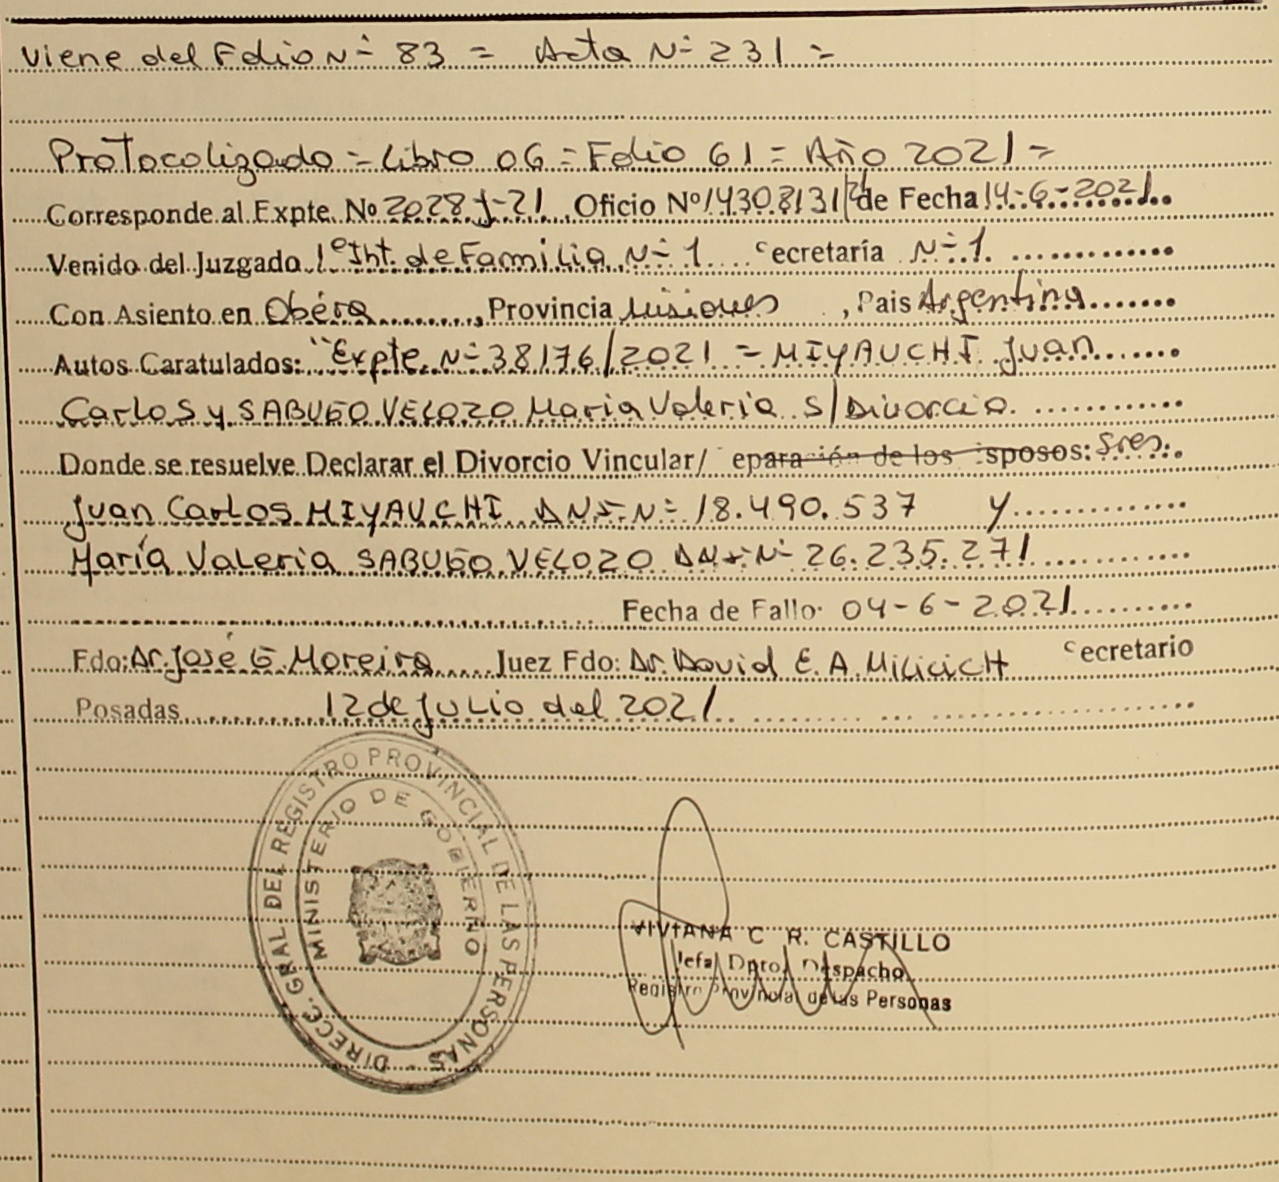 Viene del Folio Nº 83 = Acta Nº 231 =
Protocolizado = Libro 06 = Folio 61 = Año 2021 =
Corresponde al Expte. Nº 2028 J-21 Oficio Nº 14308131/21 de Fecha 14-6-2021
Venido del Juzgado 1º Int. de Familia Nº 1 Secretaría Nº 1.
Con Asiento en Obéra, Provincia Misiones, Pais Argentina
Autos Caratulados: "Expte. Nº 38176/2021 = MIYAUCHI Juan
Carlos y SABUGO VELOZO Maria Valeria S/Divorcio.
Donde se resuelve Declarar el Divorcio Vincular/ eparación de los sposos: Sres.
Juan Carlos MIYAUCHI DNI.Nº 18.490.537 y
María Valeria SABUGO VELOZO DNI Nº 26.235.271
Fecha de Fallo 04-6-2021
Fdo: Dr. José G. Moreira Juez Fdo: Dr. David E. A. MilicicH Secretario
Posadas 12 de Julio del 2021
DIRECC. GRAL. DEL REGISTRO PROVINCIAL DE LAS PERSONAS -
MINISTERIO DE GOBIERNO
VIVIANA C R. CASTILLO
Jefa Dpto. Despacho
Registro Provincial de las Personas